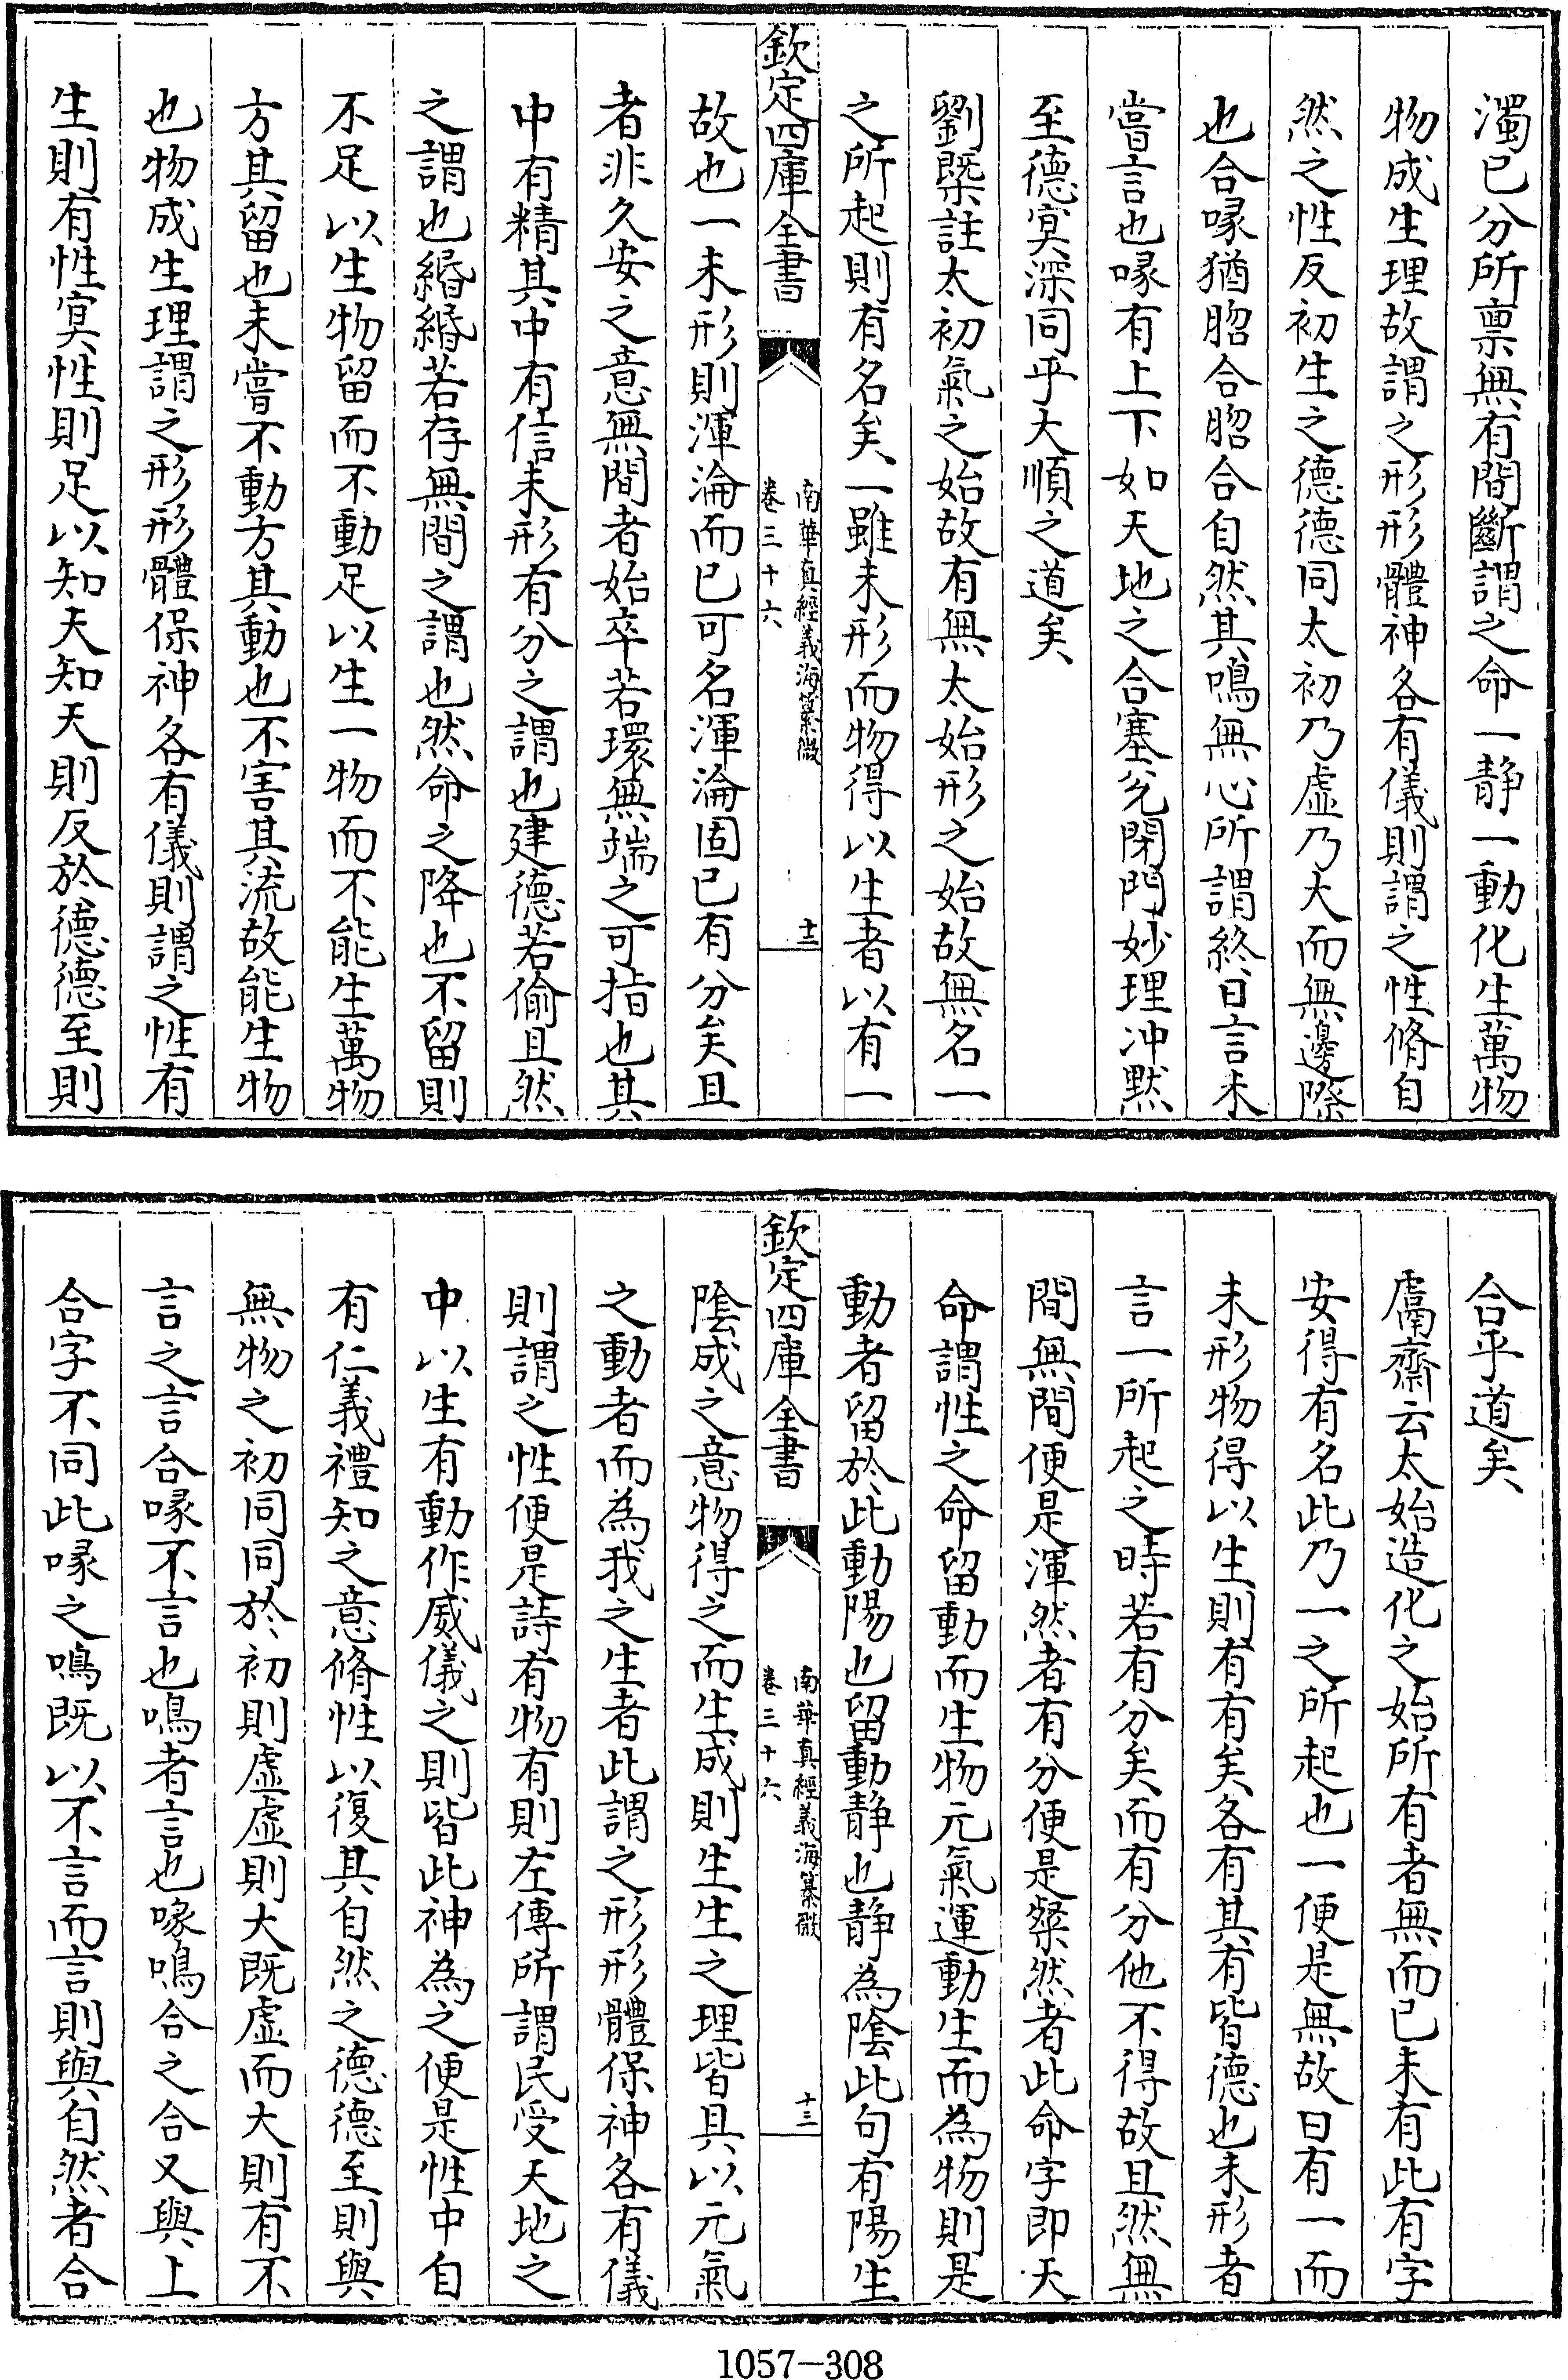 濁已分所禀無有間斷謂之命一静一動化生萬物
物成生理故謂之形形體神各有儀則謂之性脩自
然之性反初生之德德同太初乃虚乃大而無邊際
也合喙猶䏰合䏰合自然其鳴無心所謂終日言未
嘗言也喙有上下如天地之合塞兊閉門妙理冲黙
至德㝠深同乎大順之道矣
劉槩註太初氣之始故有無太始形之始故無名一
之所起則有名矣一雖未形而物得以生者以有一
欽定四庫全書
南華真經義海纂微
卷三十六
十二
故也一未形則渾淪而已可名渾淪固已有分矣且
者非久安之意無間者始卒若環無端之可指也其
中有精其中有信未形有分之謂也建德若偷且然
之謂也緡緡若存無間之謂也然命之降也不留則
不足以生物留而不動足以生一物而不能生萬物
方其留也未嘗不動方其動也不害其流故能生物
也物成生理謂之形形體保神各有儀則謂之性有
生則有性㝠性則足以知天知天則反於德德至則
合乎道矣
鬳齋云太始造化之始所有者無而已未有此有字
安得有名此乃一之所起也一便是無故曰有一而
未形物得以生則有有矣各有其有皆德也未形者
言一所起之時若有分矣而有分他不得故且然無
間無間便是渾然者有分便是粲然者此命字即天
命謂性之命留動而生物元氣運動生而為物則是
動者留於此動陽也留動静也静為隂此句有陽生
欽定四庫全書
南華真經義海纂微
卷三十六
十三
隂成之意物得之而生成則生生之理皆具以元氣
之動者而為我之生者此謂之形形體保神各有儀
則謂之性便是詩有物有則左傳所謂民受天地之
中以生有動作威儀之則皆此神為之便是性中自
有仁義禮知之意脩性以復其自然之德德至則與
無物之初同同於初則虚虚則大既虚而大則有不
言之言合喙不言也鳴者言也喙鳴合之合又與上
合字不同此喙之鳴既以不言而言則與自然者合
1057-308